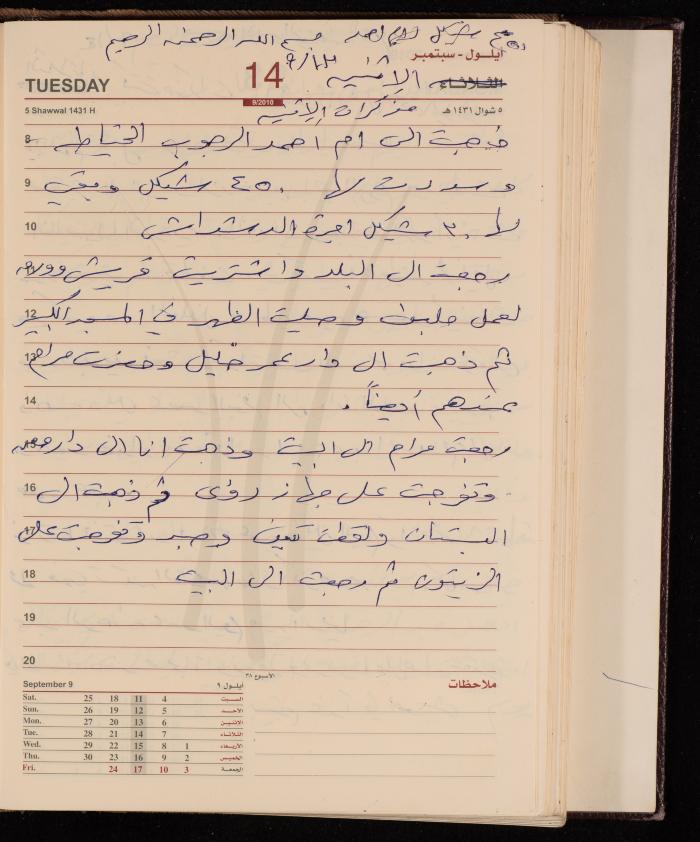 بسم الله الرحمن الرحيم
أيلول - سبتمبر
الاثنين ٩/١٣
الثلاثاء
TUESDAY
14
9/2010
5 Shawwal 1431 H
٥ شوال ١٤٣١ هـ
مذكرات الاثنين
8 ذهبت الى ام أحمد الرجوب الخياطه
9 وسددت لها ٤٥٠ شيكل وبقي
10 لها ٣٠ شيكل اجرة الدشداش
رجعت ال البلد واشتريت قريش
12 لعمل وصليت الظهر في المسجد الكبير
13 ثم ذهبت ال دار عمر خليل وحضرت مرام
14 عندهم أيضاً .
رجعت مرام ال البيت وذهبت انا ال دار
16 وتفرجت على جهاز رؤى ثم ذهبت ال
17 البستان ولقطت تين وصبر وتفرجت على
18 الزيتون ثم رجعت الى البيت
19
20
الأسبوع ٣٨
September 9 أيلول ٩
ملاحظات
Sat. 25 18 11 4 السبت
Sun. 26 19 12 5 الأحد
Mon. 27 20 13 6 الاثنين
Tue. 28 21 14 7 الثلاثاء
Wed. 29 22 15 8 1 الأربعاء
Thu. 30 23 16 9 2 الخميس
Fri. 24 17 10 3 الجمعة